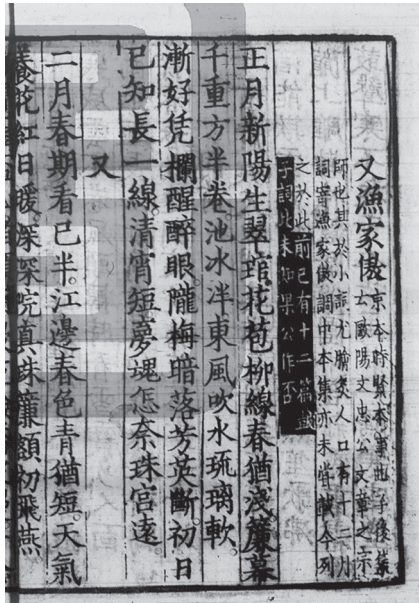 又漁家傲 京本時賢本事曲子後集
云歐陽文忠公文章之宗
師也其於小詞尤膾炙人口有十二月
詞寄漁家傲調中本集亦未嘗載今列
之於此前已有十二篇鼓
子詞此未知果公作否
正月新陽生翠琯花苞柳線春猶淺簾幕
千重方半卷池冰泮東風吹水琉璃軟。
漸好凭欄醒醉眼隴梅暗落芳英斷。初日
已知長一線。清宵短夢魂怎奈珠宮遠
又
二月春期看已半。江邊春色青猶短。天氣
養花紅日暖。深深院真珠簾額初飛燕